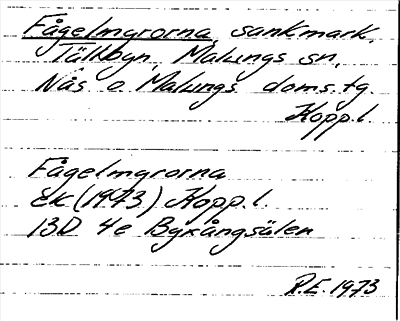 Fågelmyrorna, sankmark,
Tällbyn, Malungs sn,
Nås o. Malungs doms.tg.
Kopp.l.
Fågelmyrorna
Ek (1973) Kopp.l.
13D 4e Byxångsälen
R.E. 1973